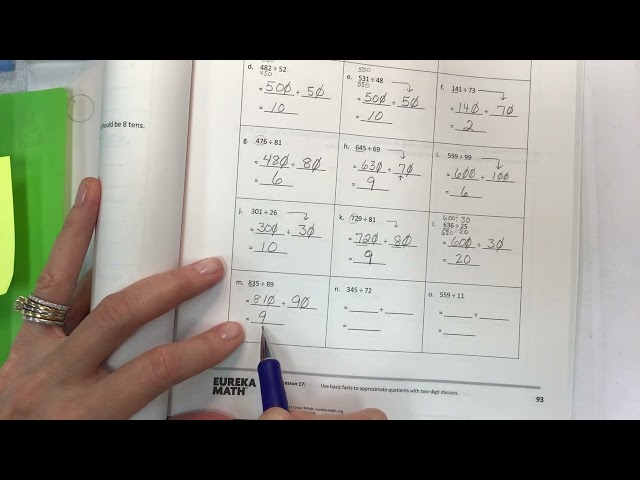 500
d. 482 ÷ 52
450
= 500 ÷ 50
= 10
500
e. 531 ÷ 48
550
= 500 ÷ 50
= 10
f. 141 ÷ 73
= 140 ÷ 70
= 2
should be 8 tens.
g. 476 ÷ 81
= 480 ÷ 80
= 6
h. 645 ÷ 69
= 630 ÷ 70
= 9
i. 599 ÷ 99
= 600 ÷ 100
= 6
j. 301 ÷ 26
= 300 ÷ 30
= 10
k. 729 ÷ 81
= 720 ÷ 80
= 9
600 ÷ 30
l. 636 ÷ 25
÷ 20
= 600 ÷ 30
= 20
m. 835 ÷ 89
= 810 ÷ 90
= 9
n. 345 ÷ 72
= ÷
=
o. 559 ÷ 11
= ÷
=
EUREKA
MATH
Lesson 17: Use basic facts to approximate quotients with two-digit divisors.
93